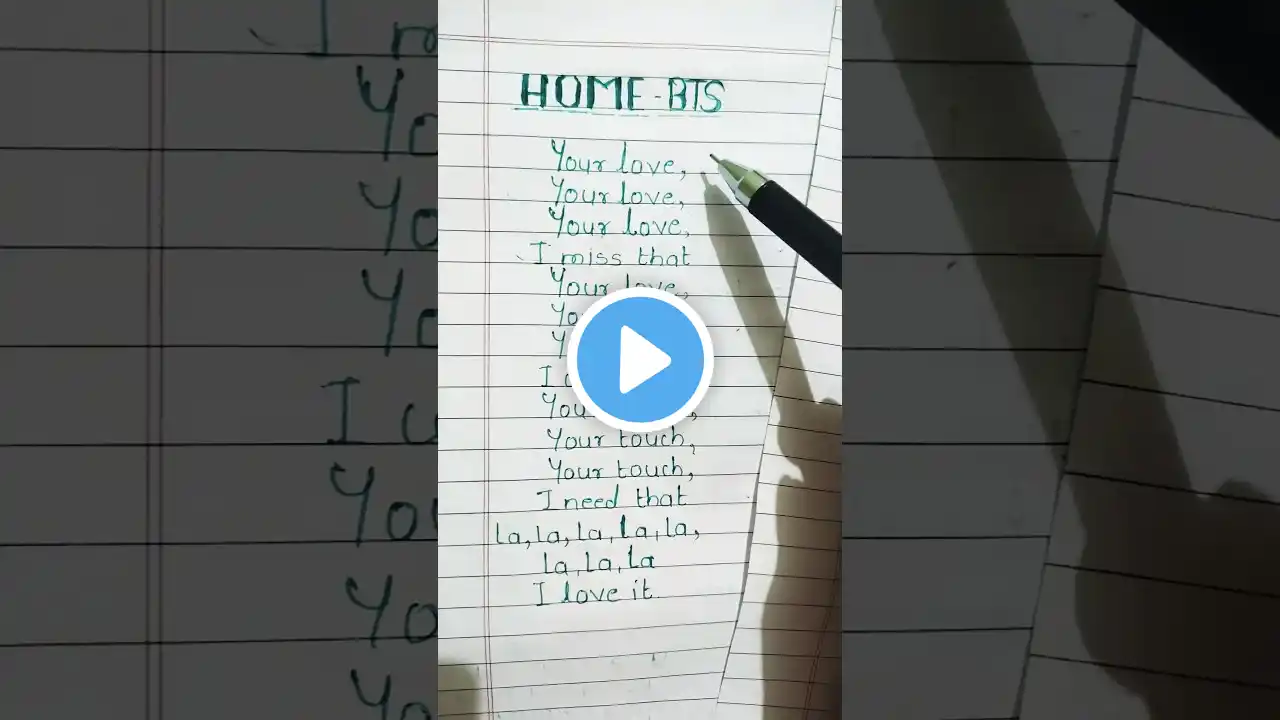 HOME - BTS
Your love,
Your love,
Your love,
I miss that
Your love,
I
You
Your touch,
Your touch,
I need that
la, la, la, la, la,
la, la, la
I love it.